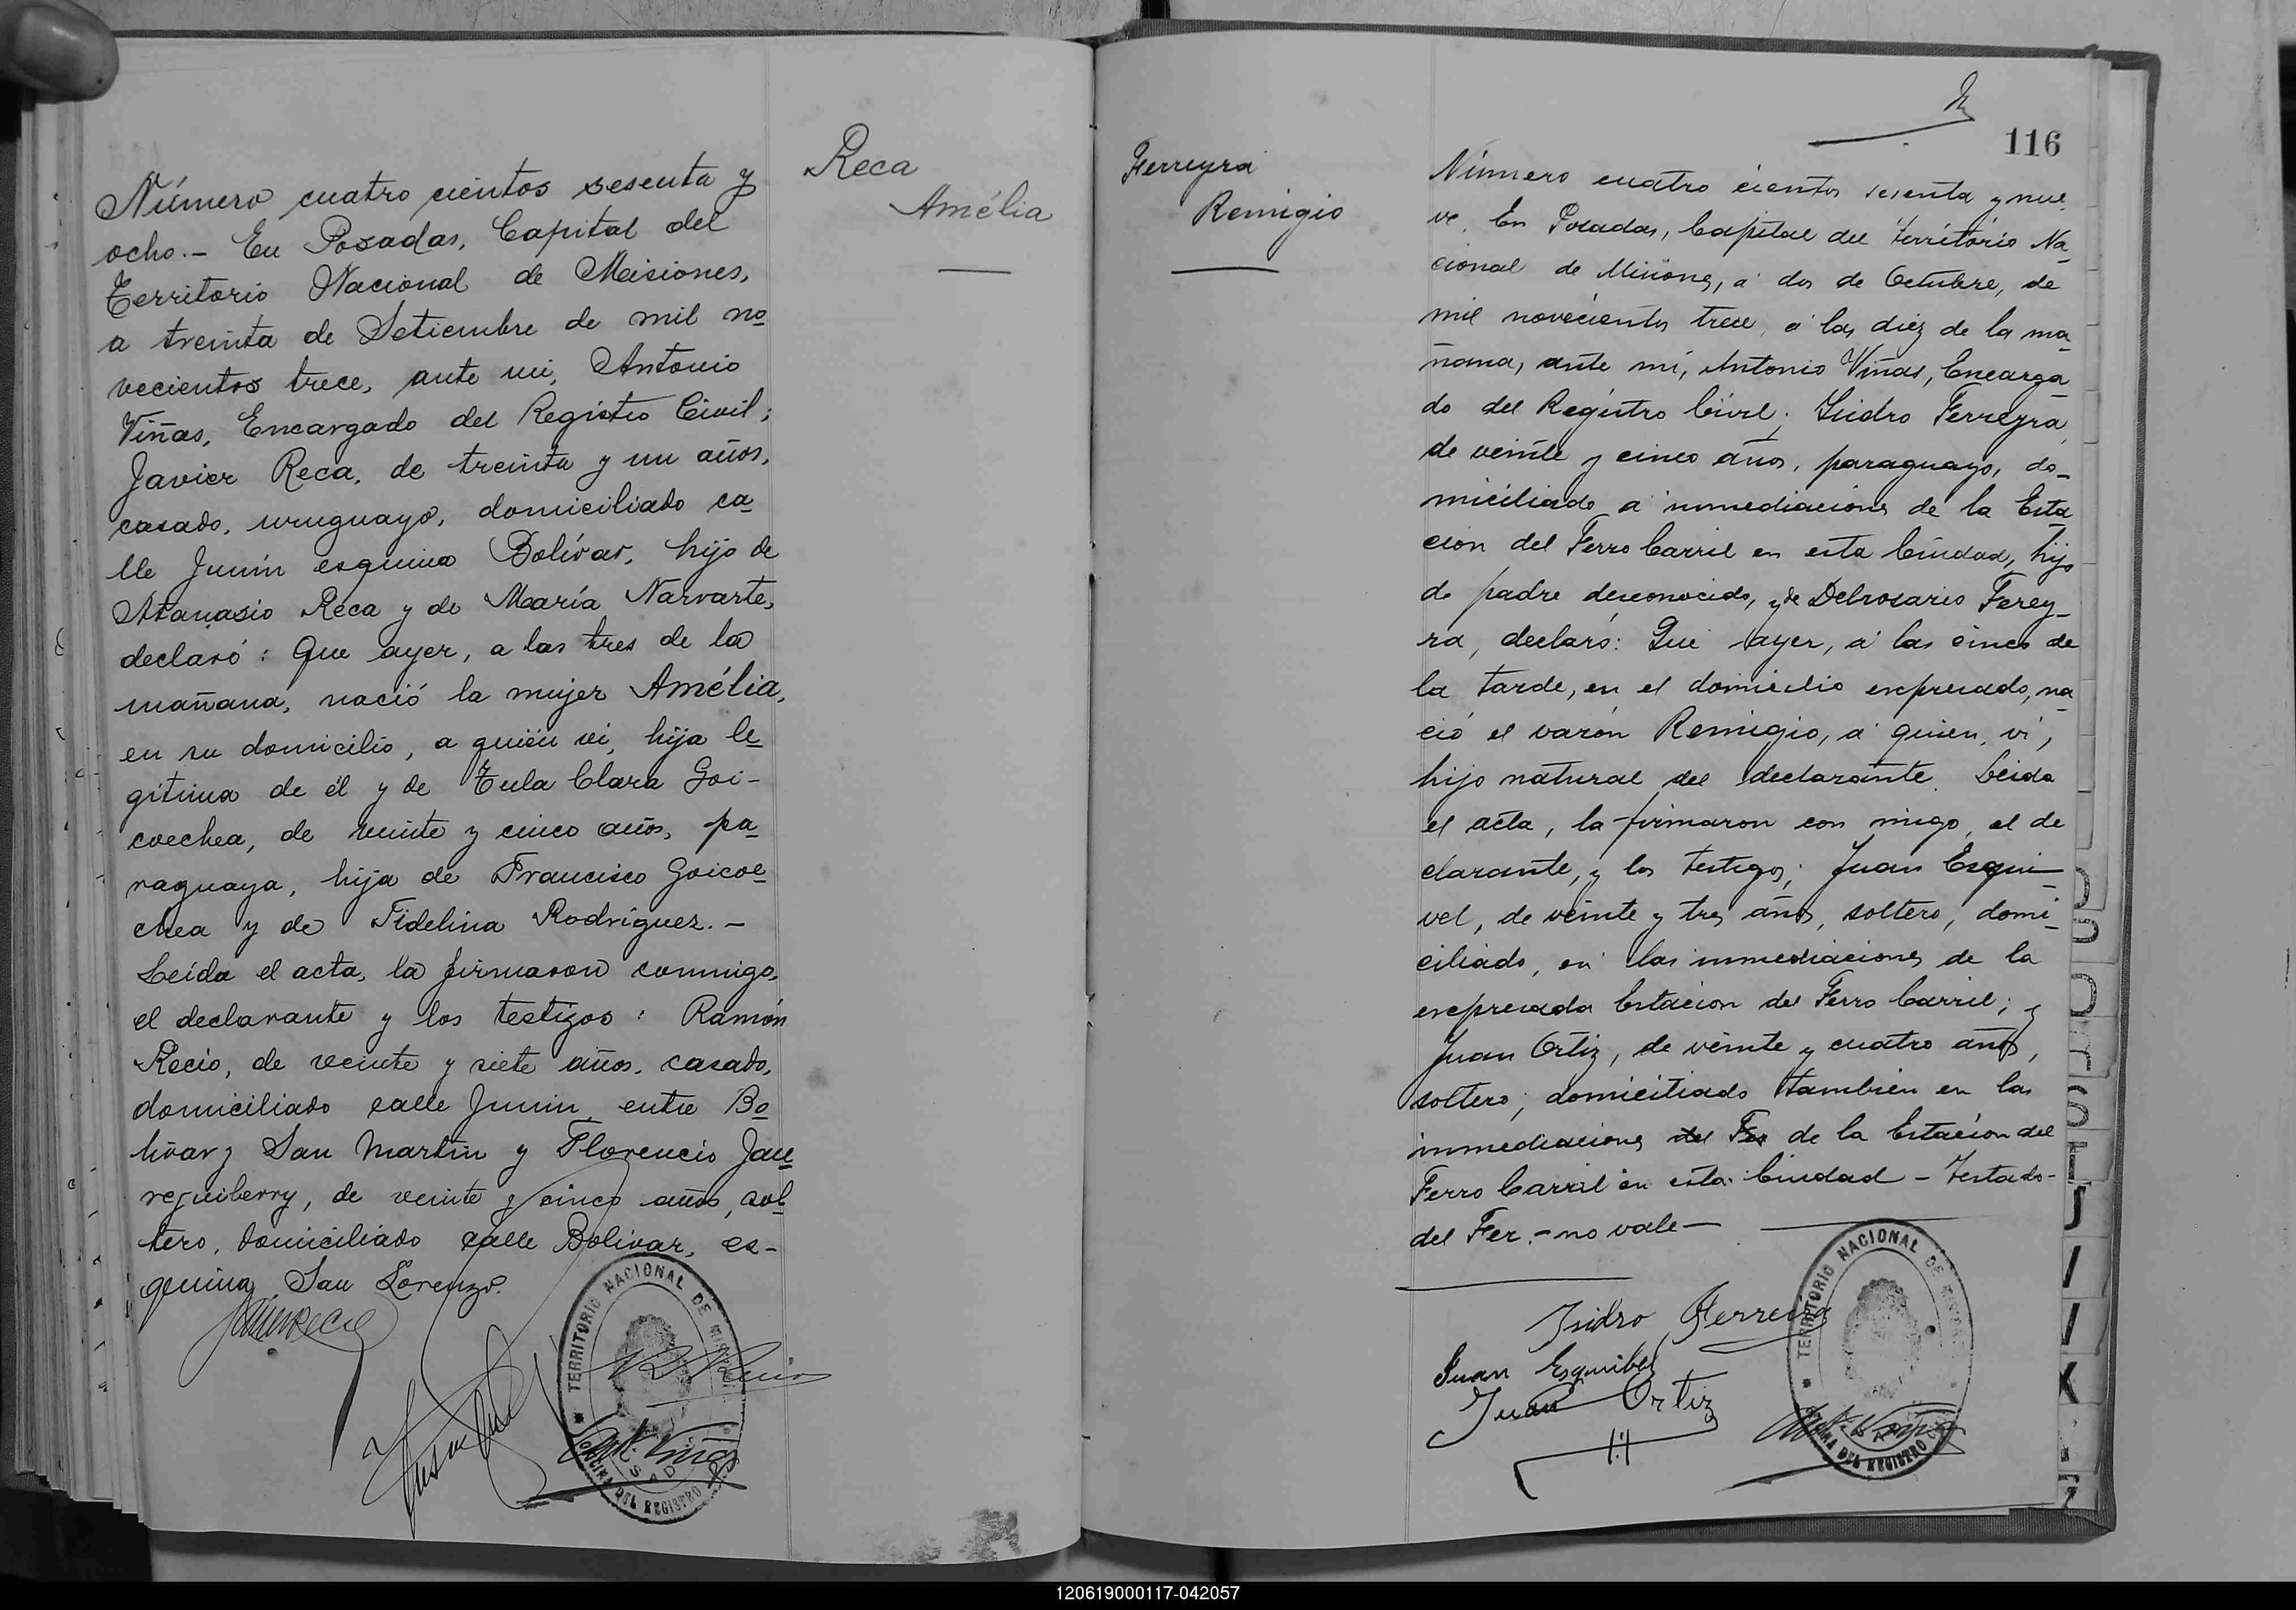 Reca
Amélia
Número cuatro cientos sesenta y
ocho.- En Posadas, Capital del
Territorio Nacional de Misiones,
a treinta de Setiembre de mil no
vecientos trece, ante mi, Antonio
Viñas, Encargado del Registro Civil;
Javier Reca, de treinta y un años,
casado, uruguayo, domiciliado ca
lle Junín esquina Bolívar, hijo de
Atanasio Reca y de María Narvarte,
declaró: Que ayer, a las tres de la
mañana, nació la mujer Amélia,
en su domicilio, a quién vi, hija le
gitima de él y de Tula Clara Goi-
coechea, de veinte y cinco años, pa
raguaya, hija de Francisco Goicoe
chea y de Fidelina Rodríguez.-
Leída el acta, la firmaron conmigo,
el declarante y los testigos: Ramón
Recio, de veinte y siete años, casado,
domiciliado calle Junin, entre Bo
livar y San Martín y Florencio Jau
reguiberry, de veinte y cinco años, sol
tero, domiciliado calle Bolivar, es-
quina San Lorenzo.
Ant. Viñas
TERRITORIO NACIONAL DE MISIONES
OFICINA DEL REGISTRO
116
Ferreyra
Remigio
Número cuatro cientos sesenta y nue
ve. En Posadas, Capital del Territorio Na
cional de Misiones, á dos de Octubre, de
mil novecientos trece, á las diez de la ma
ñana, ante mí, Antonio Viñas, Encarga
do del Registro Civil; Isidro Ferreyra,
de veinte y cinco años, paraguayo, do
miciliado á inmediaciones de la Esta
cion del Ferro Carril en esta Ciudad, hijo
de padre desconocido, y de Delrosario Ferey
ra, declaró: Que ayer, á las cinco de
la tarde, en el domicilio expresado, na
ció el varón Remigio, á quien, vi,
hijo natural del declarante. Leida
el acta, la firmaron con migo, el de
clarante, y los testigos; Juan Esqui
vel, de veinte y tres años, soltero, domi
ciliado, en las inmediaciones de la
expresada Estacion del Ferro Carril; y
Juan Ortiz, de veinte y cuatro años,
soltero, domiciliado tambien en las
inmediaciones del Fer de la Estacion del
Ferro Carril en esta Ciudad - Testado-
del Fer.- no vale-
Isidro Ferreira
Juan Esquibel
Juan Ortiz
TERRITORIO NACIONAL DE MISIONES
OFICINA DEL REGISTRO
120619000117-042057